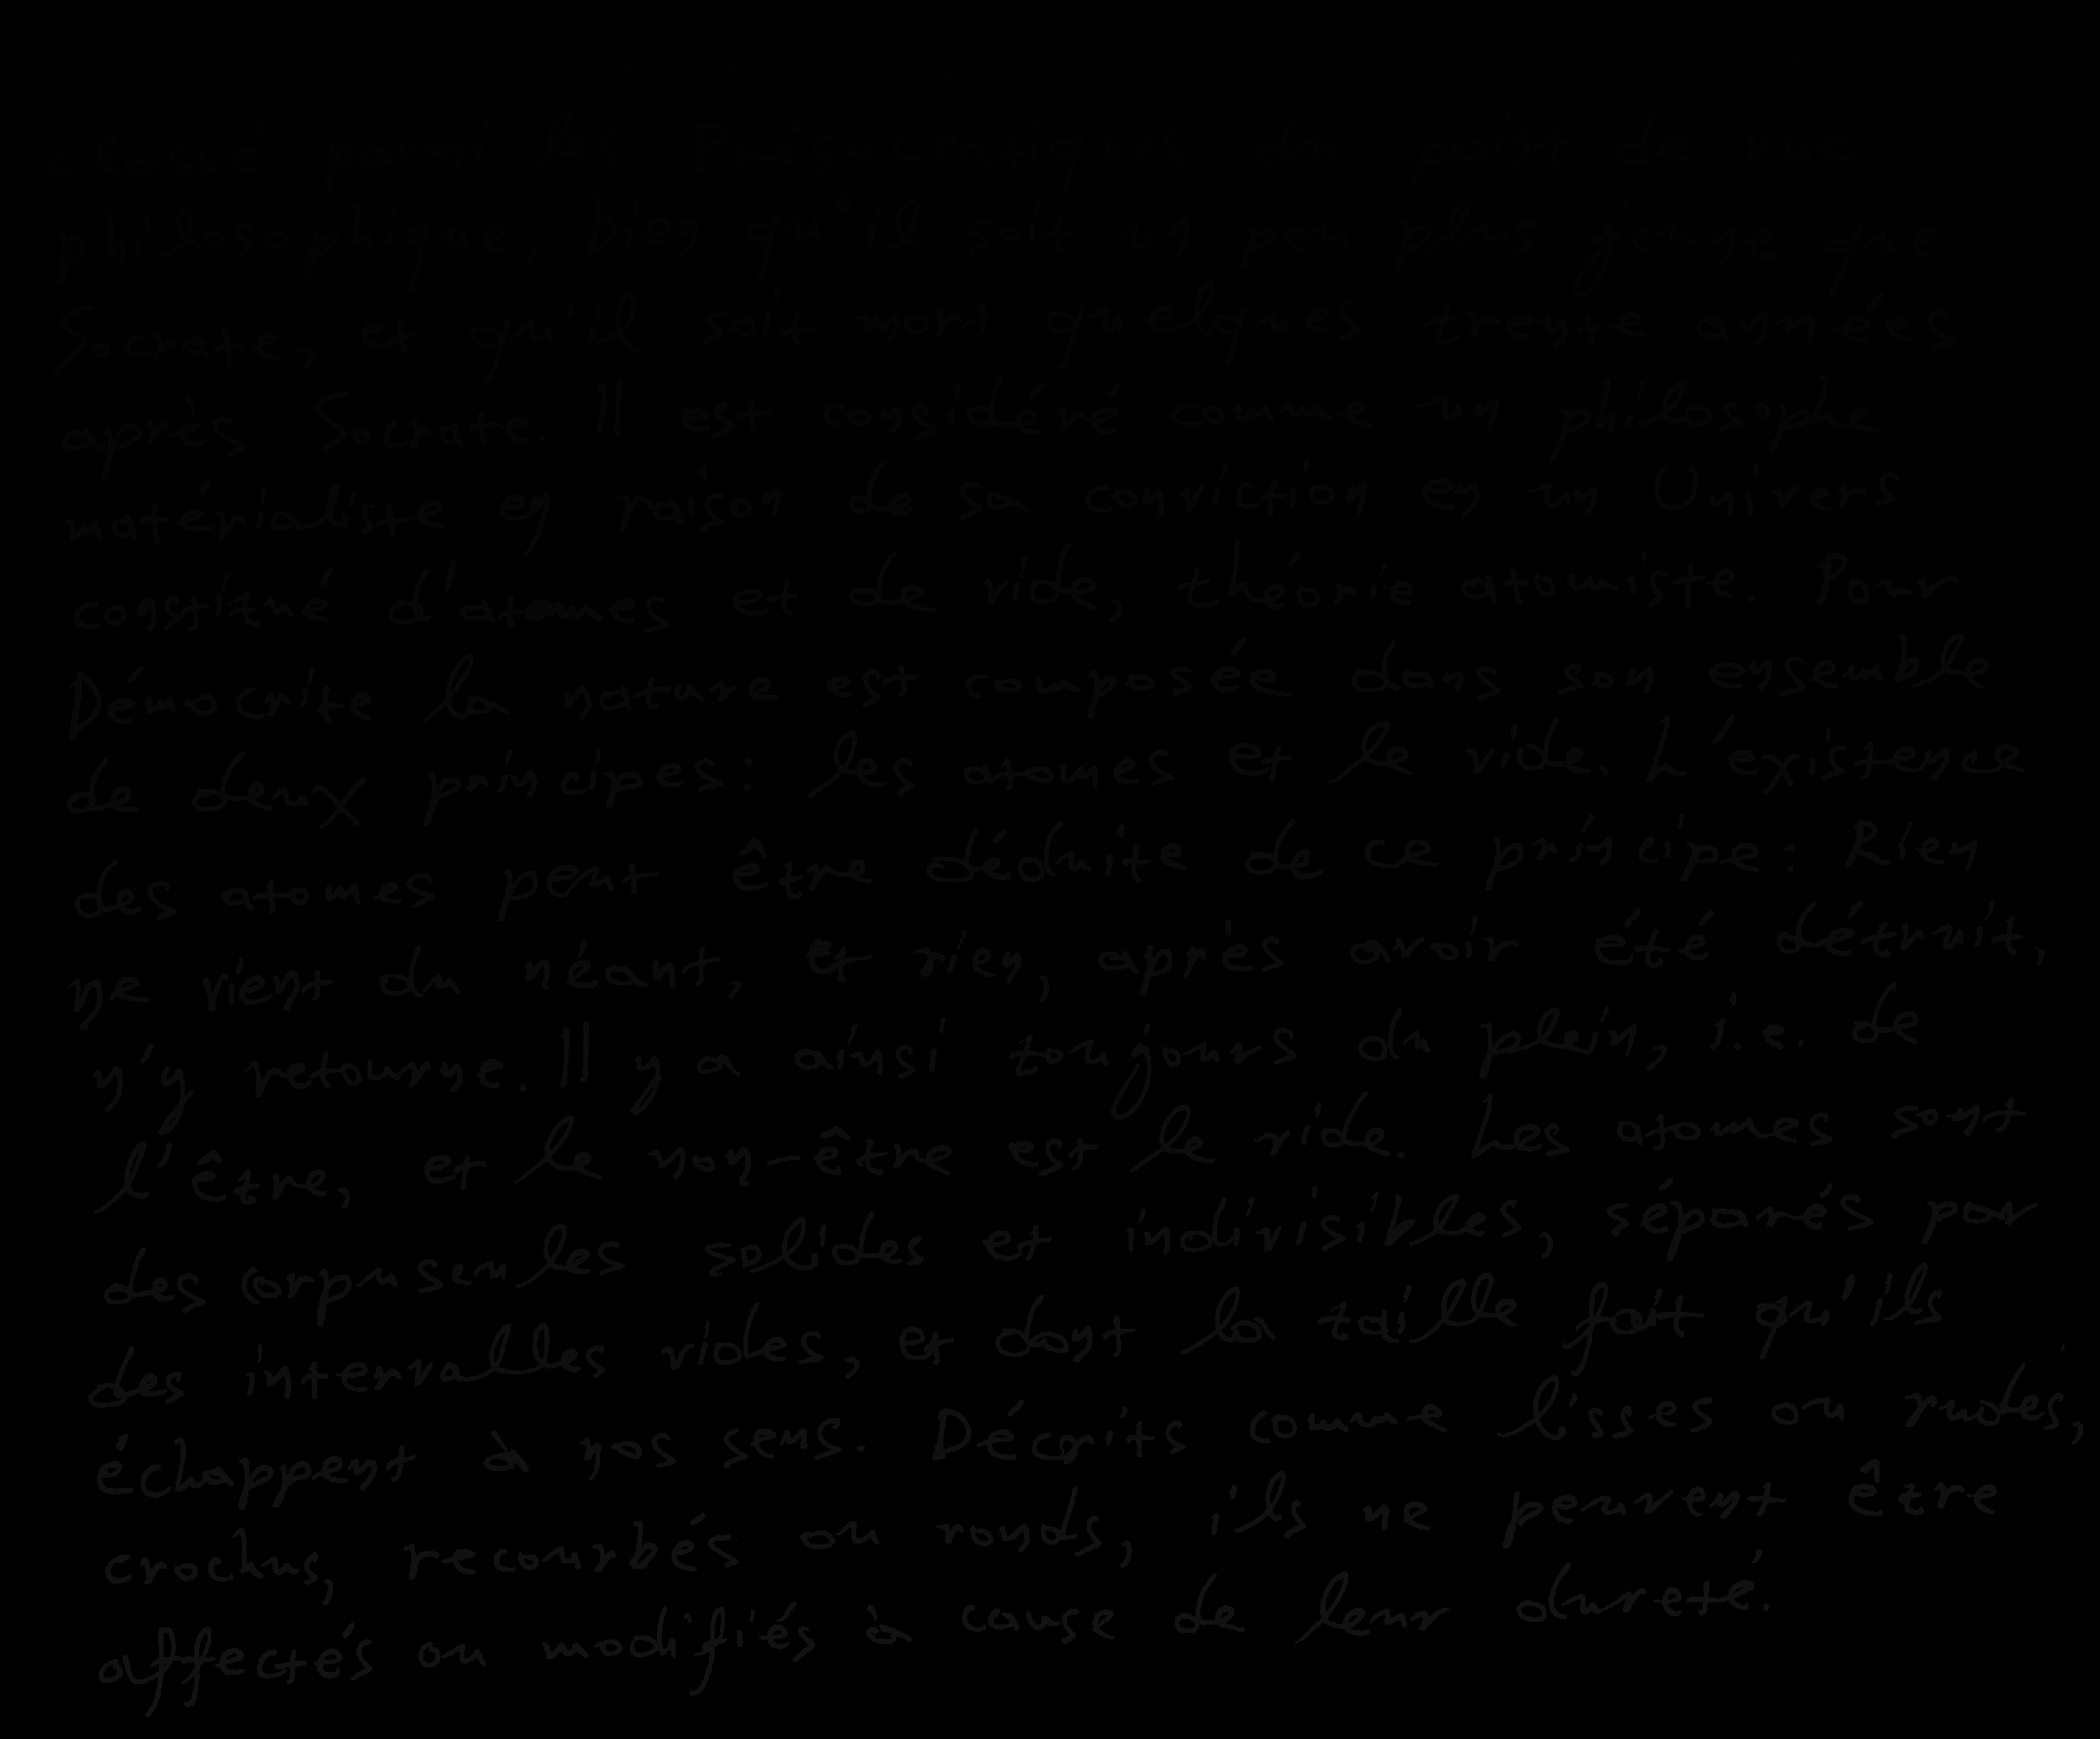 Démocrite d'Abdère était un philosophe grec
classé parmi les Présocratiques du point de vue
philosophique, bien qu'il soit un peu plus jeune que
Socrate, et qu'il soit mort quelques trente années
après Socrate. Il est considéré comme un philosophe
matérialiste en raison de sa conviction en un Univers
constitué d'atomes et de vide, théorie atomiste. Pour
Démocrite la nature est composée dans son ensemble
de deux principes: les atomes et le vide. L'existence
des atomes peut être déduite de ce principe: Rien
ne vient du néant, et rien, après avoir été détruit,
n'y retourne. Il y a ainsi toujours du plein, i.e. de
l'être, et le non-être est le vide. Les atomes sont
des corpuscules solides et indivisibles, séparés par
des intervalles vides, et dont la taille fait qu'ils
échappent à nos sens. Décrits comme lisses ou rudes,
crochus, recourbés ou ronds, ils ne peuvent être
affectés ou modifiés à cause de leur dureté.